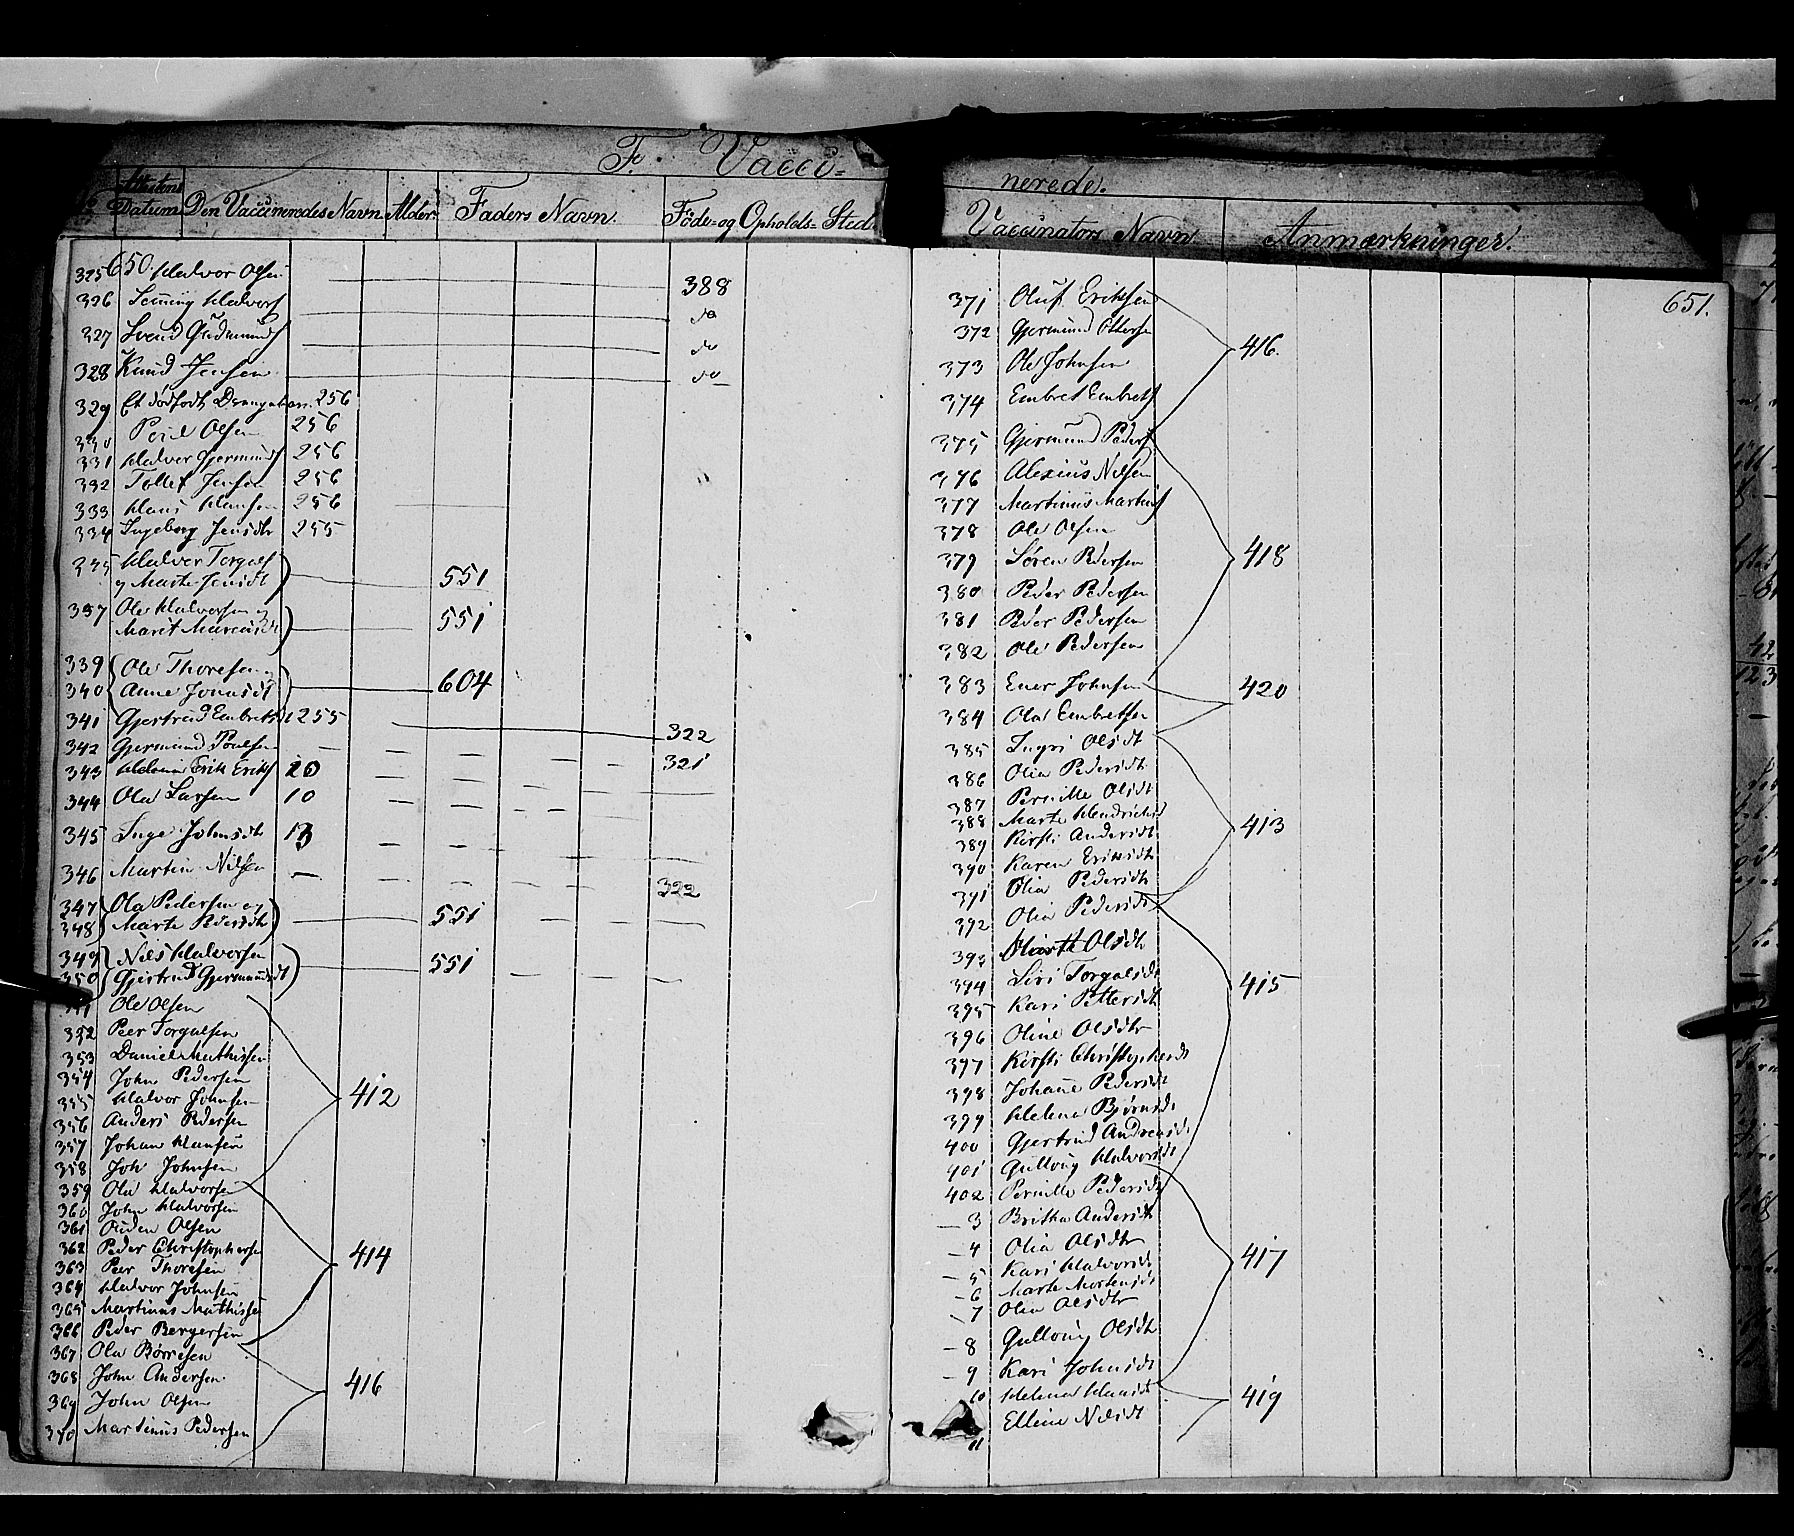 F. Vacci-
Attestens Datum Den Vaccineredes Navn. Alder Faders Navn. Føde- og Opholds-Sted
650.
325 Halvor Olsen 388
326 Halvors do
327 Svend Gudmunds do
328 Knud Jensen do
329 Et dødfødt Drengebarn. 256
330 Poul Olsen 256
331 Halvor Gjermunds 256
332 Tollef Jensen 256
333 Hans Hansen 256
334 Ingeborg Jensdtr 255
335 Halvor Torgals
og Marte Jensdt 551
337 Ole Halvorsen og
Marit 551
339 Ole Thoresen
340 Anne Jonsdt 604
341 Gjertrud Embretsd 255
342 Gjermund Poulsen — 322
343 Erik Eriks 20 321
344 Ola Larsen 10
345 Inge Johnsdtr 13
346 Martin Nilsen — 322
347 Ola Pedersen og
348 Marte Pedersdtr 551
349 Nils Halvorsen
350 Gjertrud Gjermundsdt 551
Ole Olsen
352 Peer Torgalsen
353 Daniel Mathissen
354 John Pedersen
355 Halvor Johnsen 412
356 Anders Pedersen
357 Johan Hansen
358 Joh Johnsen
359 Ola Halvorsen
360 John Halvorsen
361 Ouden Olsen
362 Peder Christophersen 414
363 Peer Thoresen
364 Halvor Johnsen
365 Martinus Mathissen
366 Peder Bergersen
367 Ola Børresen
368 John Andersen. 416
369 John Olsen
370 Martinus Pedersen
nerede.
Vaccinators Navn Anmærkninger.
651.
371 Oluf Eriksen
372 Gjermund Ottersen 416.
373 Ole Johnsen
374 Embret Embrets
375 Gjermund Peders
376 Alexius Nilsen
377 Martinus Martins
378 Ole Olsen
379 Søren Pedersen 418
380 Peder Pedersen
381 Peder Pedersen
382 Ole Pedersen
383 Ener Johnsen 420
384 Ola Embretsen
385 Ingri Olsdt
386 Olia Pedersdt
387 Pernille Olsdt
388 Marte Hendriksd 413
389 Kirsti Andersdt
390 Karen Eriksdt
391 Olia Pedersdt
392 Olia Pedersdt
393 Marte Olsdt
394 Siri Torgalsdt 415
395 Kari Pettersdt
396 Oline Olsdtr
397 Kirsti Christophersdt
398 Johane Pedersdt
399 Helena Bjørnsdt
400 Gjertrud Andreasdt
401 Gullong Halvorsdt
402 Pernille Pedersdt
— 3 Britha Andersdt
— 4 Olia Olsdtr 417
— 5 Kari Halvorsdt
— 6 Marte Mortensdt
— 7 Olia Olsdtr
— 8 Gullong Olsdt
— 9 Kari Johnsdt
10 Helena Hansdt 419
11 Elline Nilsdt